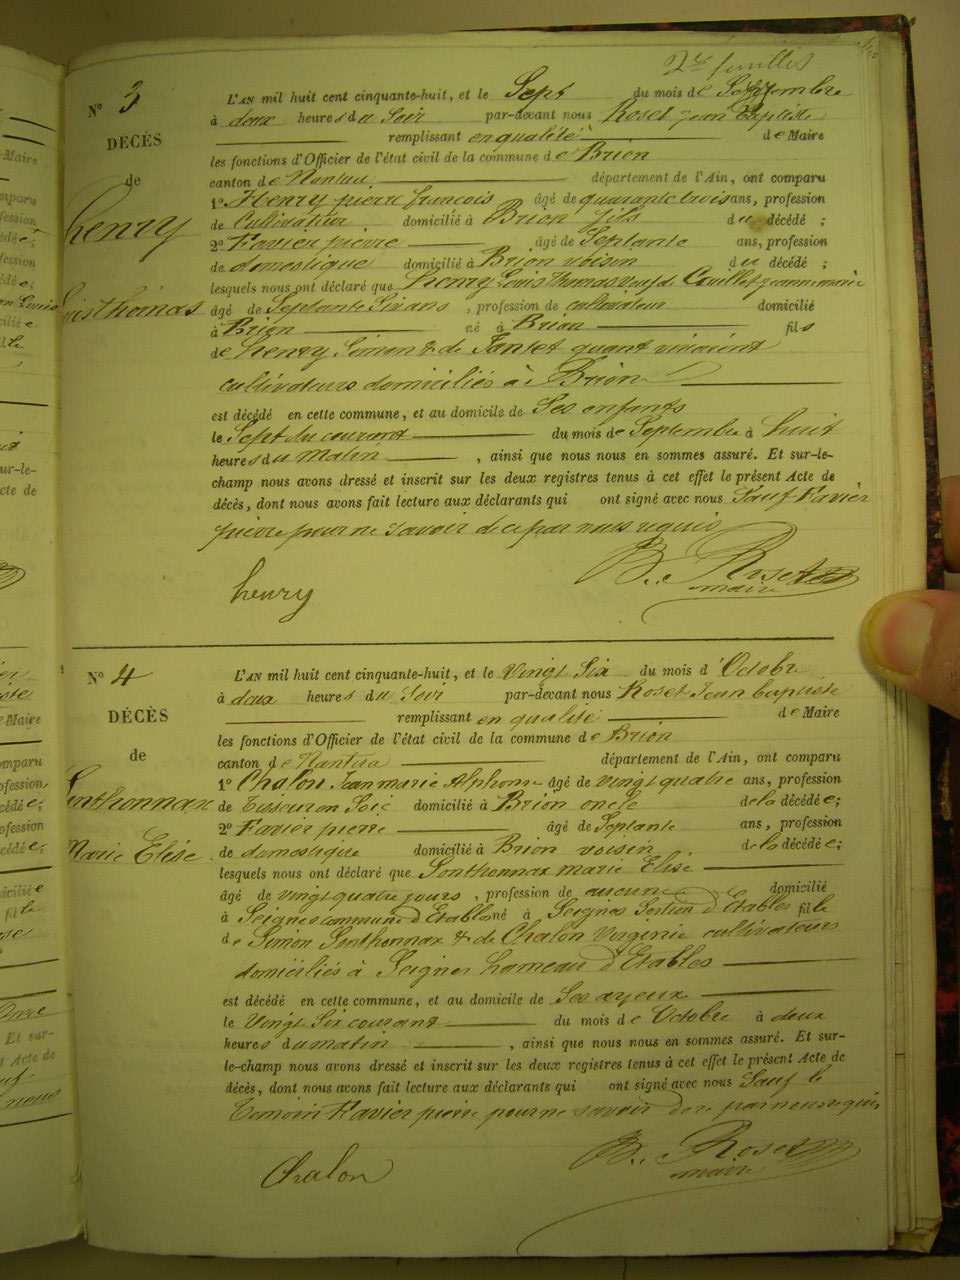 2es feuillet
N° 3
DÉCÈS
de
henry
Louis thomas
L'AN mil huit cent cinquante-huit, et le Sept du mois de Septembre
à deux heures du Soir par-devant nous Roset jean Baptiste
remplissant en qualité de Maire
les fonctions d'Officier de l'état civil de la commune de Brion
canton de Nantua département de l'Ain, ont comparu
1° Henry pierre françois âgé de quarante trois ans, profession
de Cultivateur domicilié à Brion fils du décédé ;
2° Favier pierre âgé de Septante ans, profession
de domestique domicilié à Brion voisin du décédé ;
lesquels nous ont déclaré que henry Louis thomas veuf de Cruillet jeanne marie
âgé de Septante Six ans, profession de cultivateur domicilié
à Brion né à Brion fils
de henry Simon & de quant vivaient
cultivateurs domiciliés à Brion
est décédé en cette commune, et au domicile de Ses enfants
le Sept du courant du mois de Septembre à huit
heures du Matin, ainsi que nous nous en sommes assuré. Et sur-le-
champ nous avons dressé et inscrit sur les deux registres tenus à cet effet le présent Acte de
décès, dont nous avons fait lecture aux déclarants qui ont signé avec nous Sauf Favier
pierre pour ne Savoir de ce par nous requis
henry
B.te Roset
maire
N° 4
DÉCÈS
de
Sonthonnax
Marie Elise
L'AN mil huit cent cinquante-huit, et le Vingt Six du mois d'Octobre
à deux heures du Soir par-devant nous Roset Jean baptiste
remplissant en qualité de Maire
les fonctions d'Officier de l'état civil de la commune de Brion
canton de Nantua département de l'Ain, ont comparu
1° Chalon Jean marie Alphonse âgé de vingt quatre ans, profession
de Tisseur en Soie domicilié à Brion oncle de la décédée;
2° Favier pierre âgé de Septante ans, profession
de domestique domicilié à Brion voisin de la décédée;
lesquels nous ont déclaré que Sonthonnax marie Elise
âgé de vingt quatre jours, profession de aucune domicilié
à Seignes commune d'Etables né à Seignes Section d'Etables fille
de Simon Sonthonnax & de Chalon Virginie cultivateurs
domiciliés à Seignes hameau d'Etables
est décédé en cette commune, et au domicile de Ses ayeux
le Vingt Six courant du mois de Octobre à deux
heures du matin, ainsi que nous nous en sommes assuré. Et sur-
le-champ nous avons dressé et inscrit sur les deux registres tenus à cet effet le présent Acte de
décès, dont nous avons fait lecture aux déclarants qui ont signé avec nous Sauf le
Temoin Favier pierre pour ne savoir de ce par nous requis
Chalon
B.te Roset
maire